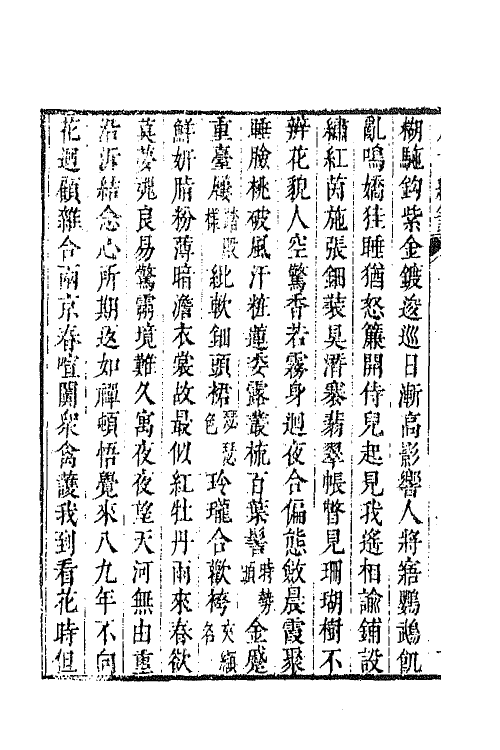 糊駞鈎紫金鍍逡巡日漸高影響人將寤鸚鵡飢
亂鳴嬌狌睡猶怒簾開侍兒起見我遙相諭鋪設
繡紅茵施張鈿裝具潛褰翡翠帳瞥見珊瑚樹不
辨花貌人空驚香若霧身迴夜合偏態斂晨霞聚
睡臉桃破風汗粧蓮委露叢梳百葉髻時勢頭金蹙
重臺屨踏殿樣紕軟鈿頭裙瑟瑟色玲瓏合歡袴夾纈名
鮮妍脂粉薄暗澹衣裳故最似紅牡丹雨來春欲
莫夢䰟良易驚靈境難久寓夜夜望天河無由重
沿泝結念心所期返如禪頓悟覺來八九年不向
花迴顧雜合兩京春喧闐眾禽護我到看花時但